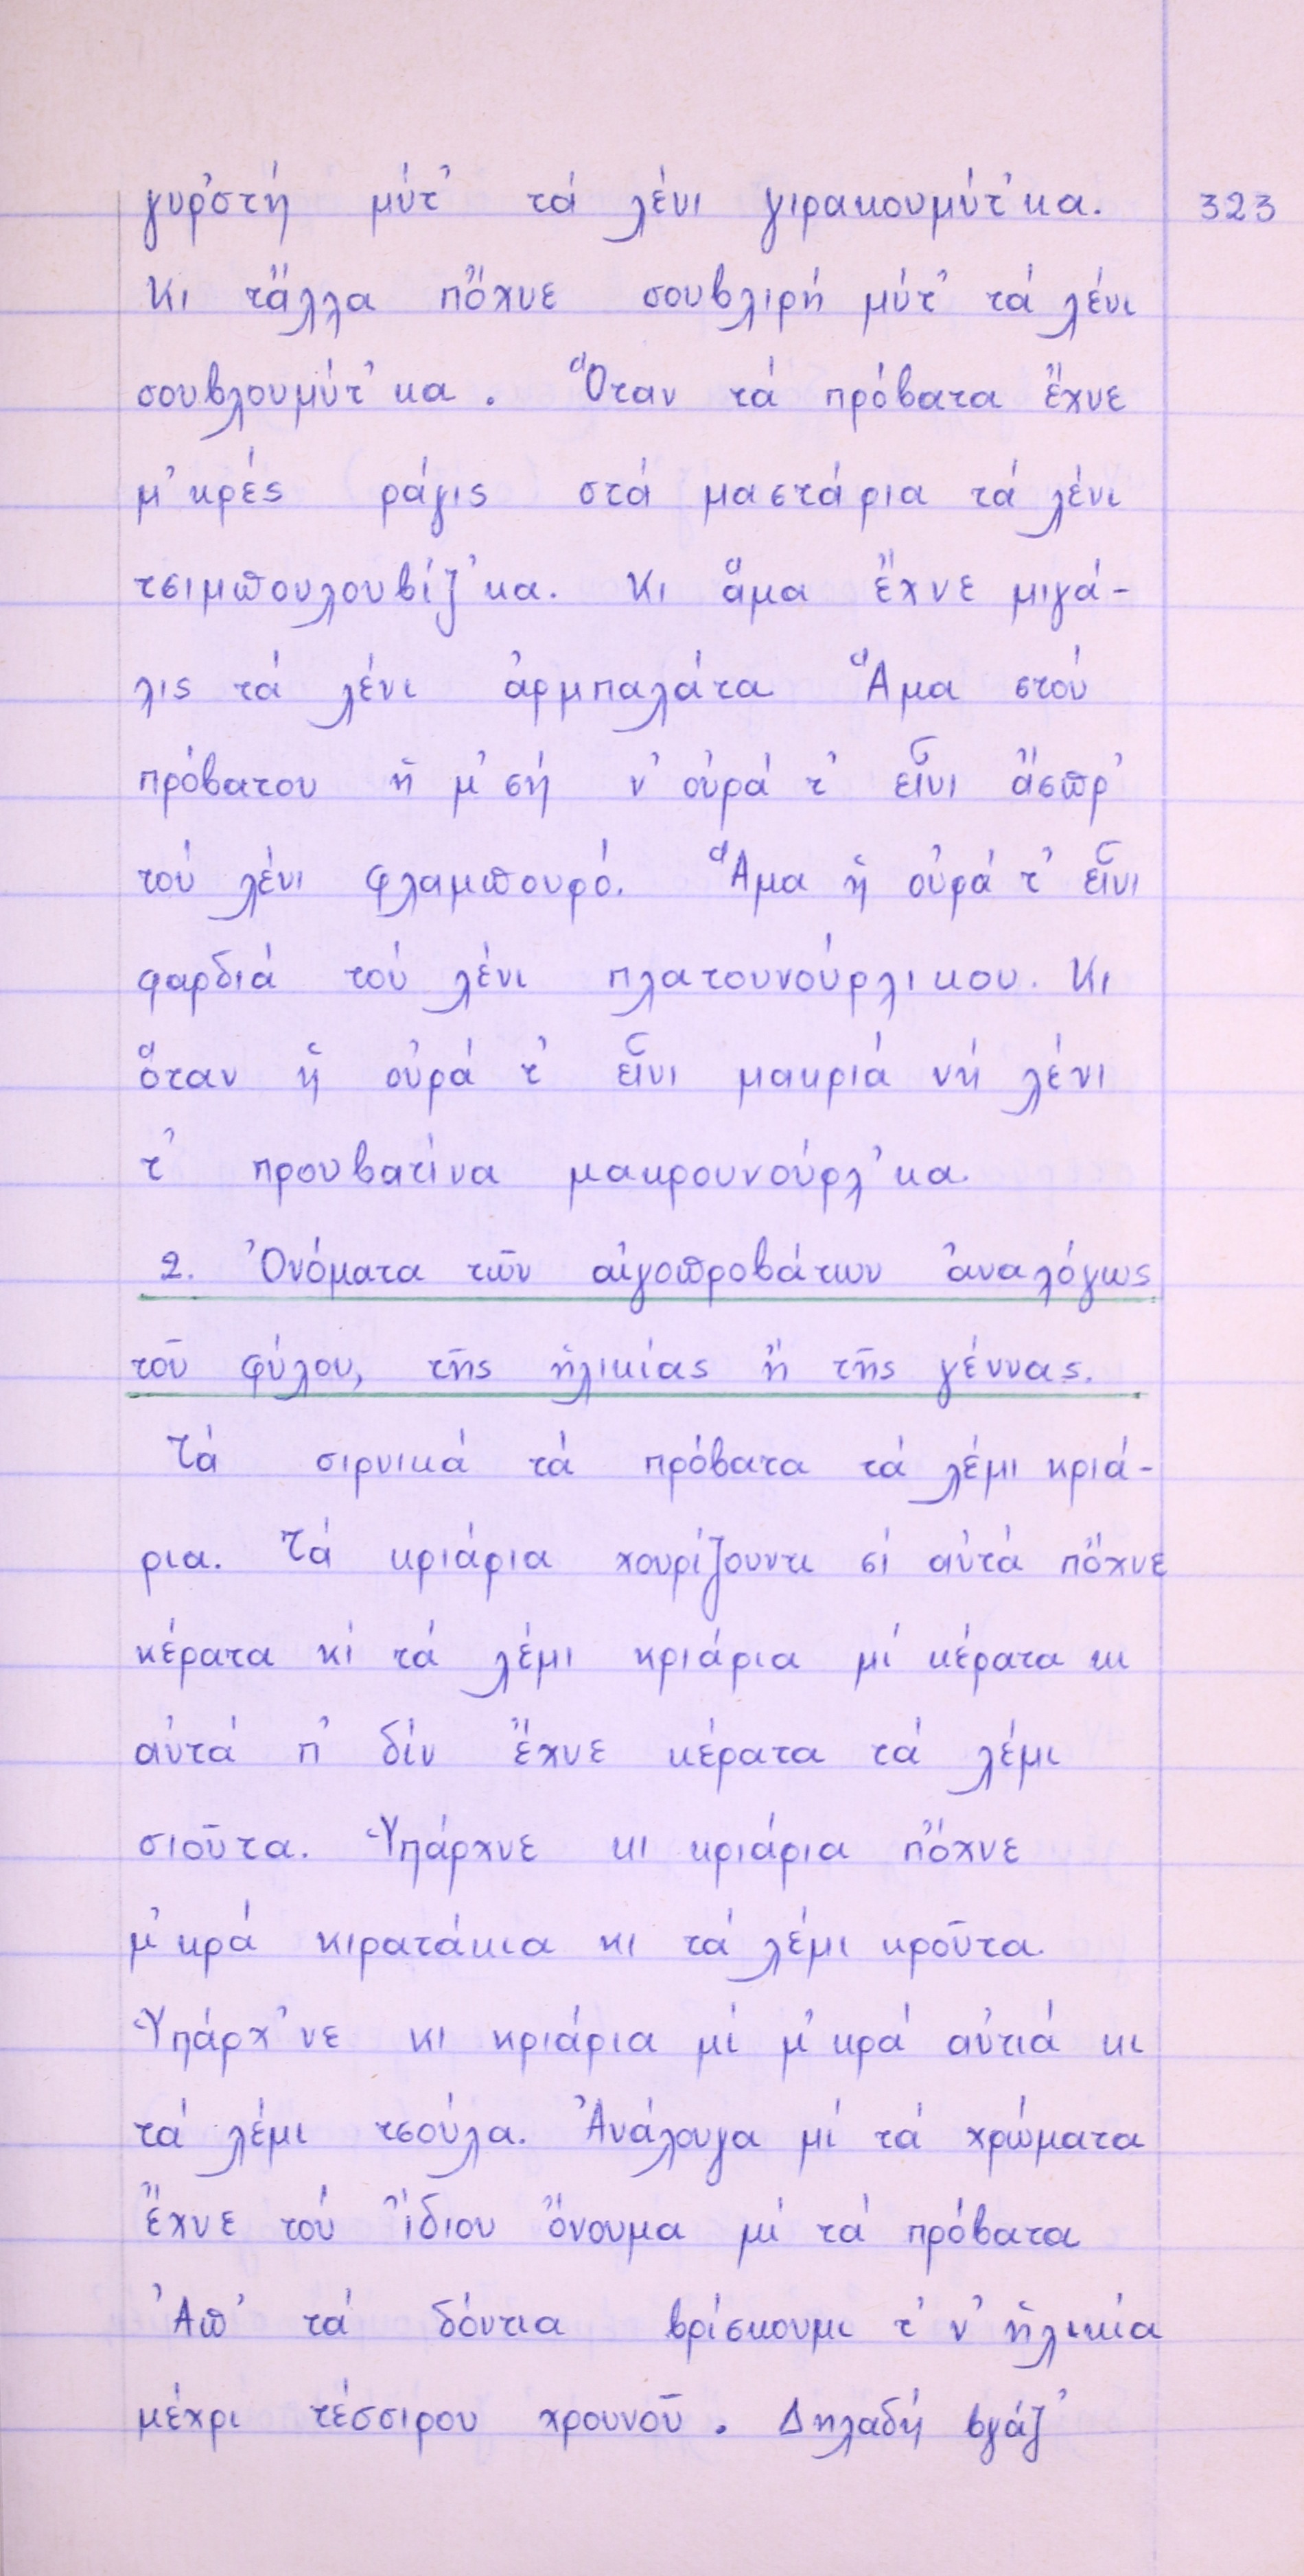 γυρ'στή μύτ' τά λένι γιρακουμύτ'κα. 323
Κι τἄλλα πὄχνε σουβλιρή μύτ' τά λένι
σουβλουμύτ'κα. Ὅταν τά πρόβατα ἔχνε
μ'κρές ράγις στά μαστάρια τά λένι
τσιμπουλουβίζ'κα. Κι ἅμα ἔχνε μιγά-
λις τά λένι ἀρμπαλάτα Ἅμα στού
πρόβατου ἡ μ'σή ν' οὐρά τ' εἶνι ἄσπρ'
τού λένι φλαμπουρό. Ἅμα ἡ οὐρά τ' εἶνι
φαρδιά τού λένι πλατουνούρλικου. Κι
ὅταν ἡ οὐρά τ' εἶνι μακριά νή λένι
τ' προυβατίνα μακρουνούρλ'κα.
2. Ὀνόματα τῶν αἰγοπροβάτων ἀναλόγως
τοῦ φύλου, τῆς ἡλικίας ἤ τῆς γέννας.
Τά σιρνικά τά πρόβατα τά λέμι κριά-
ρια. Τά κριάρια χουρίζουντι σί αὐτά πὄχνε
κέρατα κί τά λέμι κριάρια μί κέρατα κι
αὐτά π' δίν ἔχνε κέρατα τά λέμι
σιοῦτα. Ὑπάρχνε κι κριάρια πὄχνε
μ'κρά κιρατάκια κι τά λέμι κροῦτα.
Ὑπάρχ'νε κι κριάρια μί μ'κρά αὐτιά κι
τά λέμι τσούλα. Ἀνάλουγα μί τά χρώματα
ἔχνε τού ἴδιου ὄνουμα μί τά πρόβατα
Ἀπ' τά δόντια βρίσκουμι τ'ν' ἡλικία
μέχρι τέσσιρου χρουνοῦ. Δηλαδή βγάζ'